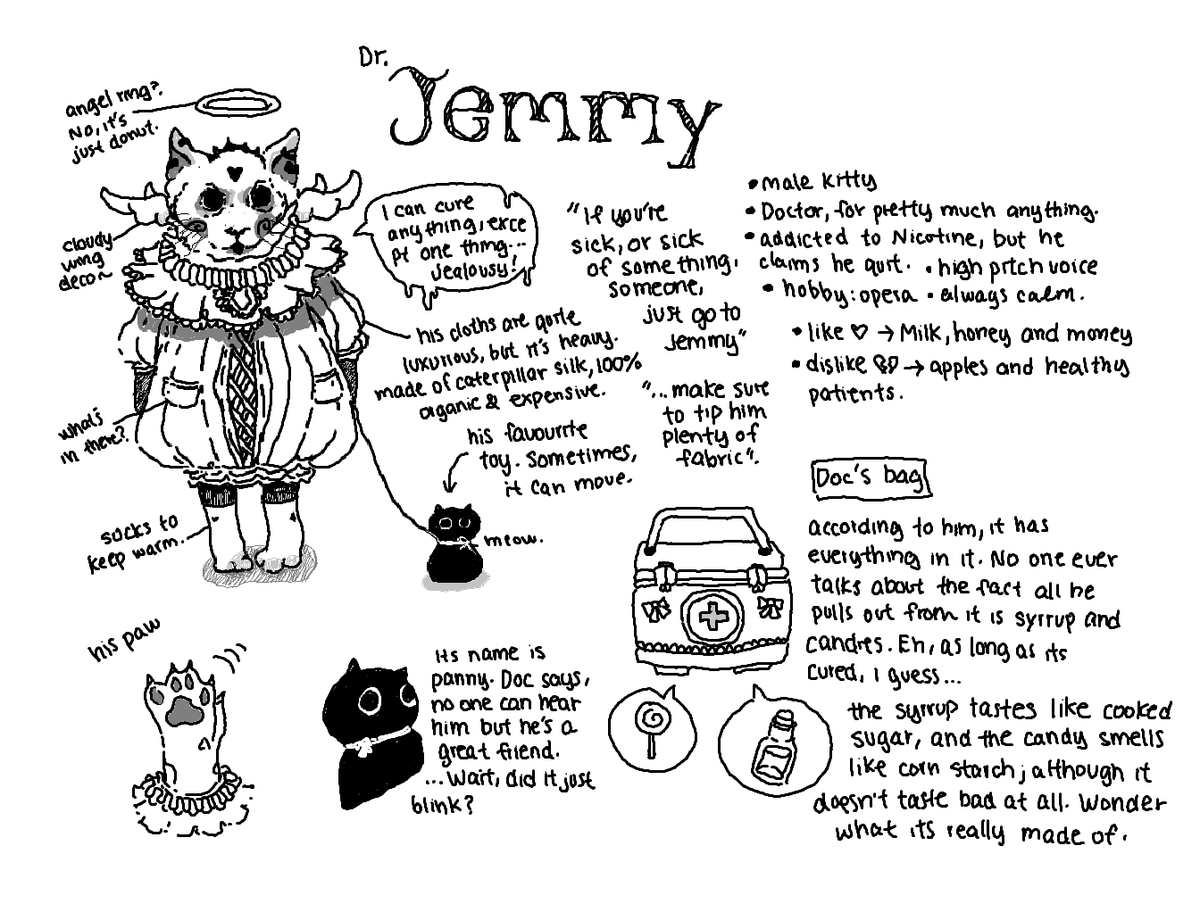 Dr.
Jemmy
angel ring?
No, it's
just donut.
cloudy
wing
deco~
I can cure
anything, exce
pt one thing...
Jealousy!
"If you're
sick, or sick
of something,
someone,
just go to
Jemmy"
"...make sure
to tip him
plenty of
fabric".
• male kitty
• Doctor, for pretty much anything.
• addicted to Nicotine, but he
claims he quit. • high pitch voice
• hobby: opera • always calm.
• like ♡ → Milk, honey and money
• dislike → apples and healthy
patients.
his cloths are quite
luxurious, but it's heavy.
made of caterpillar silk, 100%
organic & expensive.
what's
in there?
his favourite
toy. Sometimes,
it can move.
meow.
socks to
keep warm.
his paw
its name is
panny. Doc says,
no one can hear
him but he's a
great friend.
...Wait, did it just
blink?
Doc's bag
according to him, it has
everything in it. No one ever
talks about the fact all he
pulls out from it is syrrup and
candies. Eh, as long as its
cured, i guess...
the syrrup tastes like cooked
sugar, and the candy smells
like corn starch; although it
doesn't taste bad at all. Wonder
what its really made of.